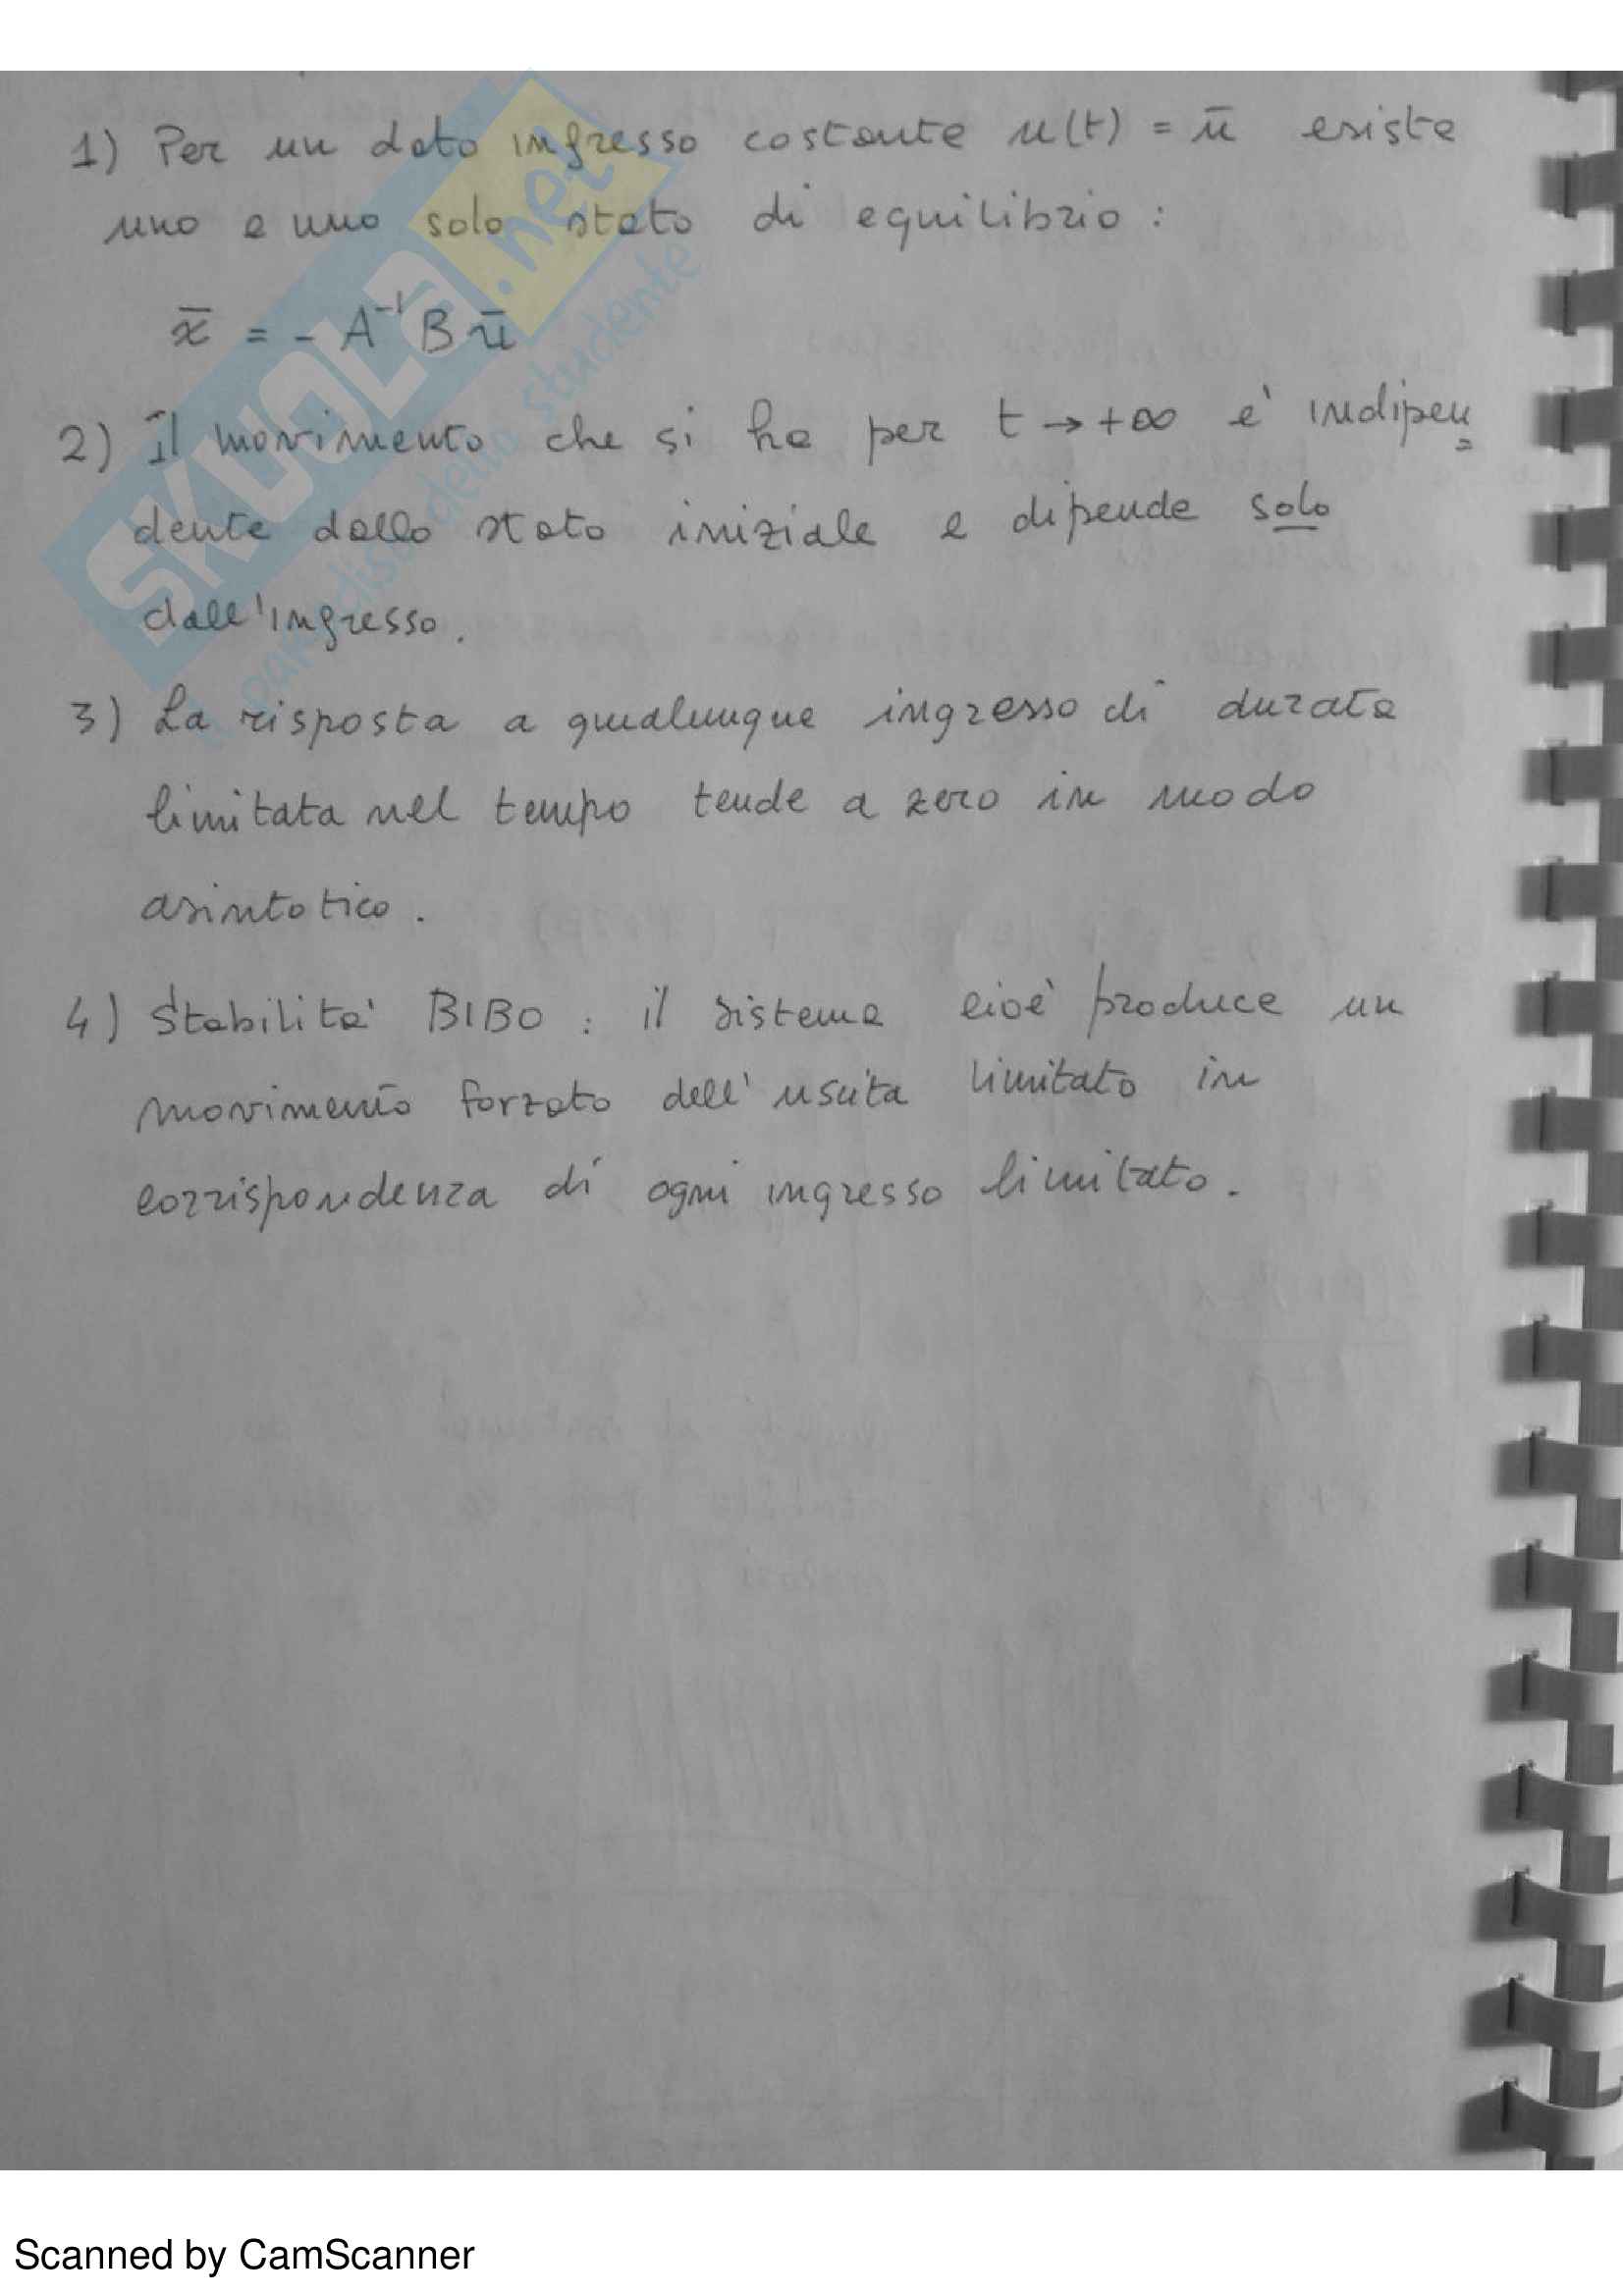 1) Per un dato ingresso costante u(t) = ū esiste
uno e uno solo stato di equilibrio :
x̄ = - A⁻¹ B ū
2) Il movimento che si ha per t → +∞ e' indipen=
dente dallo stato iniziale e dipende solo
dall'ingresso.
3) La risposta a qualunque ingresso di durata
limitata nel tempo tende a zero in modo
asintotico.
4) Stabilita' BIBO : il sistema cioè produce un
movimento forzato dell'uscita limitato in
corrispondenza di ogni ingresso limitato.
SKUOLA.net
il paradiso dello studente
Scanned by CamScanner